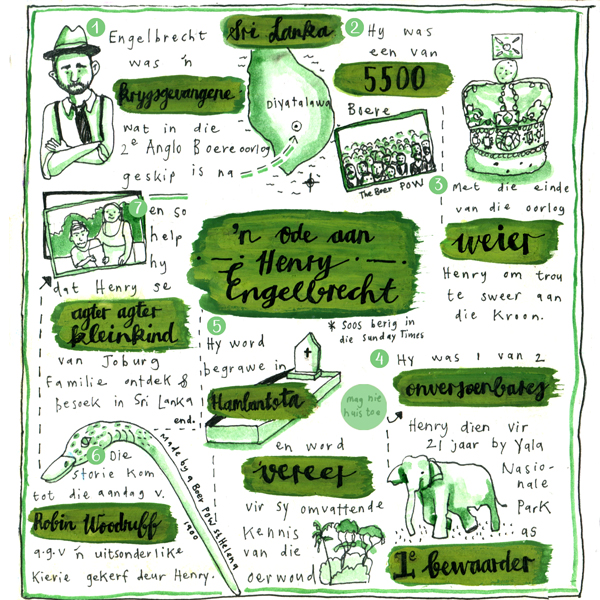 'n ode aan
Henry
Engelbrecht
* soos berig in
die Sunday Times
1
Engelbrecht
was 'n
krygsgevangene
wat in die
2e Anglo Boereoorlog
geskip is na
Sri Lanka
Diyatalawa
2
Hy was
een van
5500
Boere
The Boer POW
3
Met die einde
van die oorlog
weier
Henry om trou
te sweer aan
die Kroon.
4
Hy was 1 van 2
onversoenbares
mag nie
huis toe
Henry dien vir
21 jaar by Yala
Nasio-
nale
Park
as
1e bewaarder
5
Hy word
begrawe in
Hambantota
en word
vereer
vir sy omvattende
kennis
van die
oerwoud
6
Die
storie kom
tot die aandag v.
Robin Woodruff
a.g.v 'n uitsonderlike
Kierie gekerf deur Henry.
Made by a Boer POW St Helena
1900
7
en so
help
hy
dat Henry se
agter agter
kleinkind
van Joburg
Familie ontdek &
besoek in Sri Lanka
end.